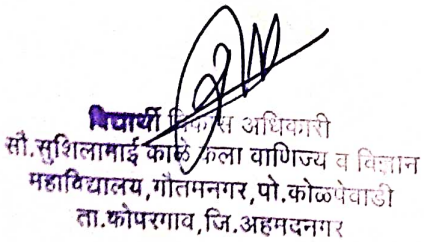 विद्यार्थी विकास अधिकारी
सौ.सुशिलामाई काळे कला वाणिज्य व विज्ञान
महाविद्यालय,गौतमनगर,पो.कोळपेवाडी
ता.कोपरगाव,जि.अहमदनगर